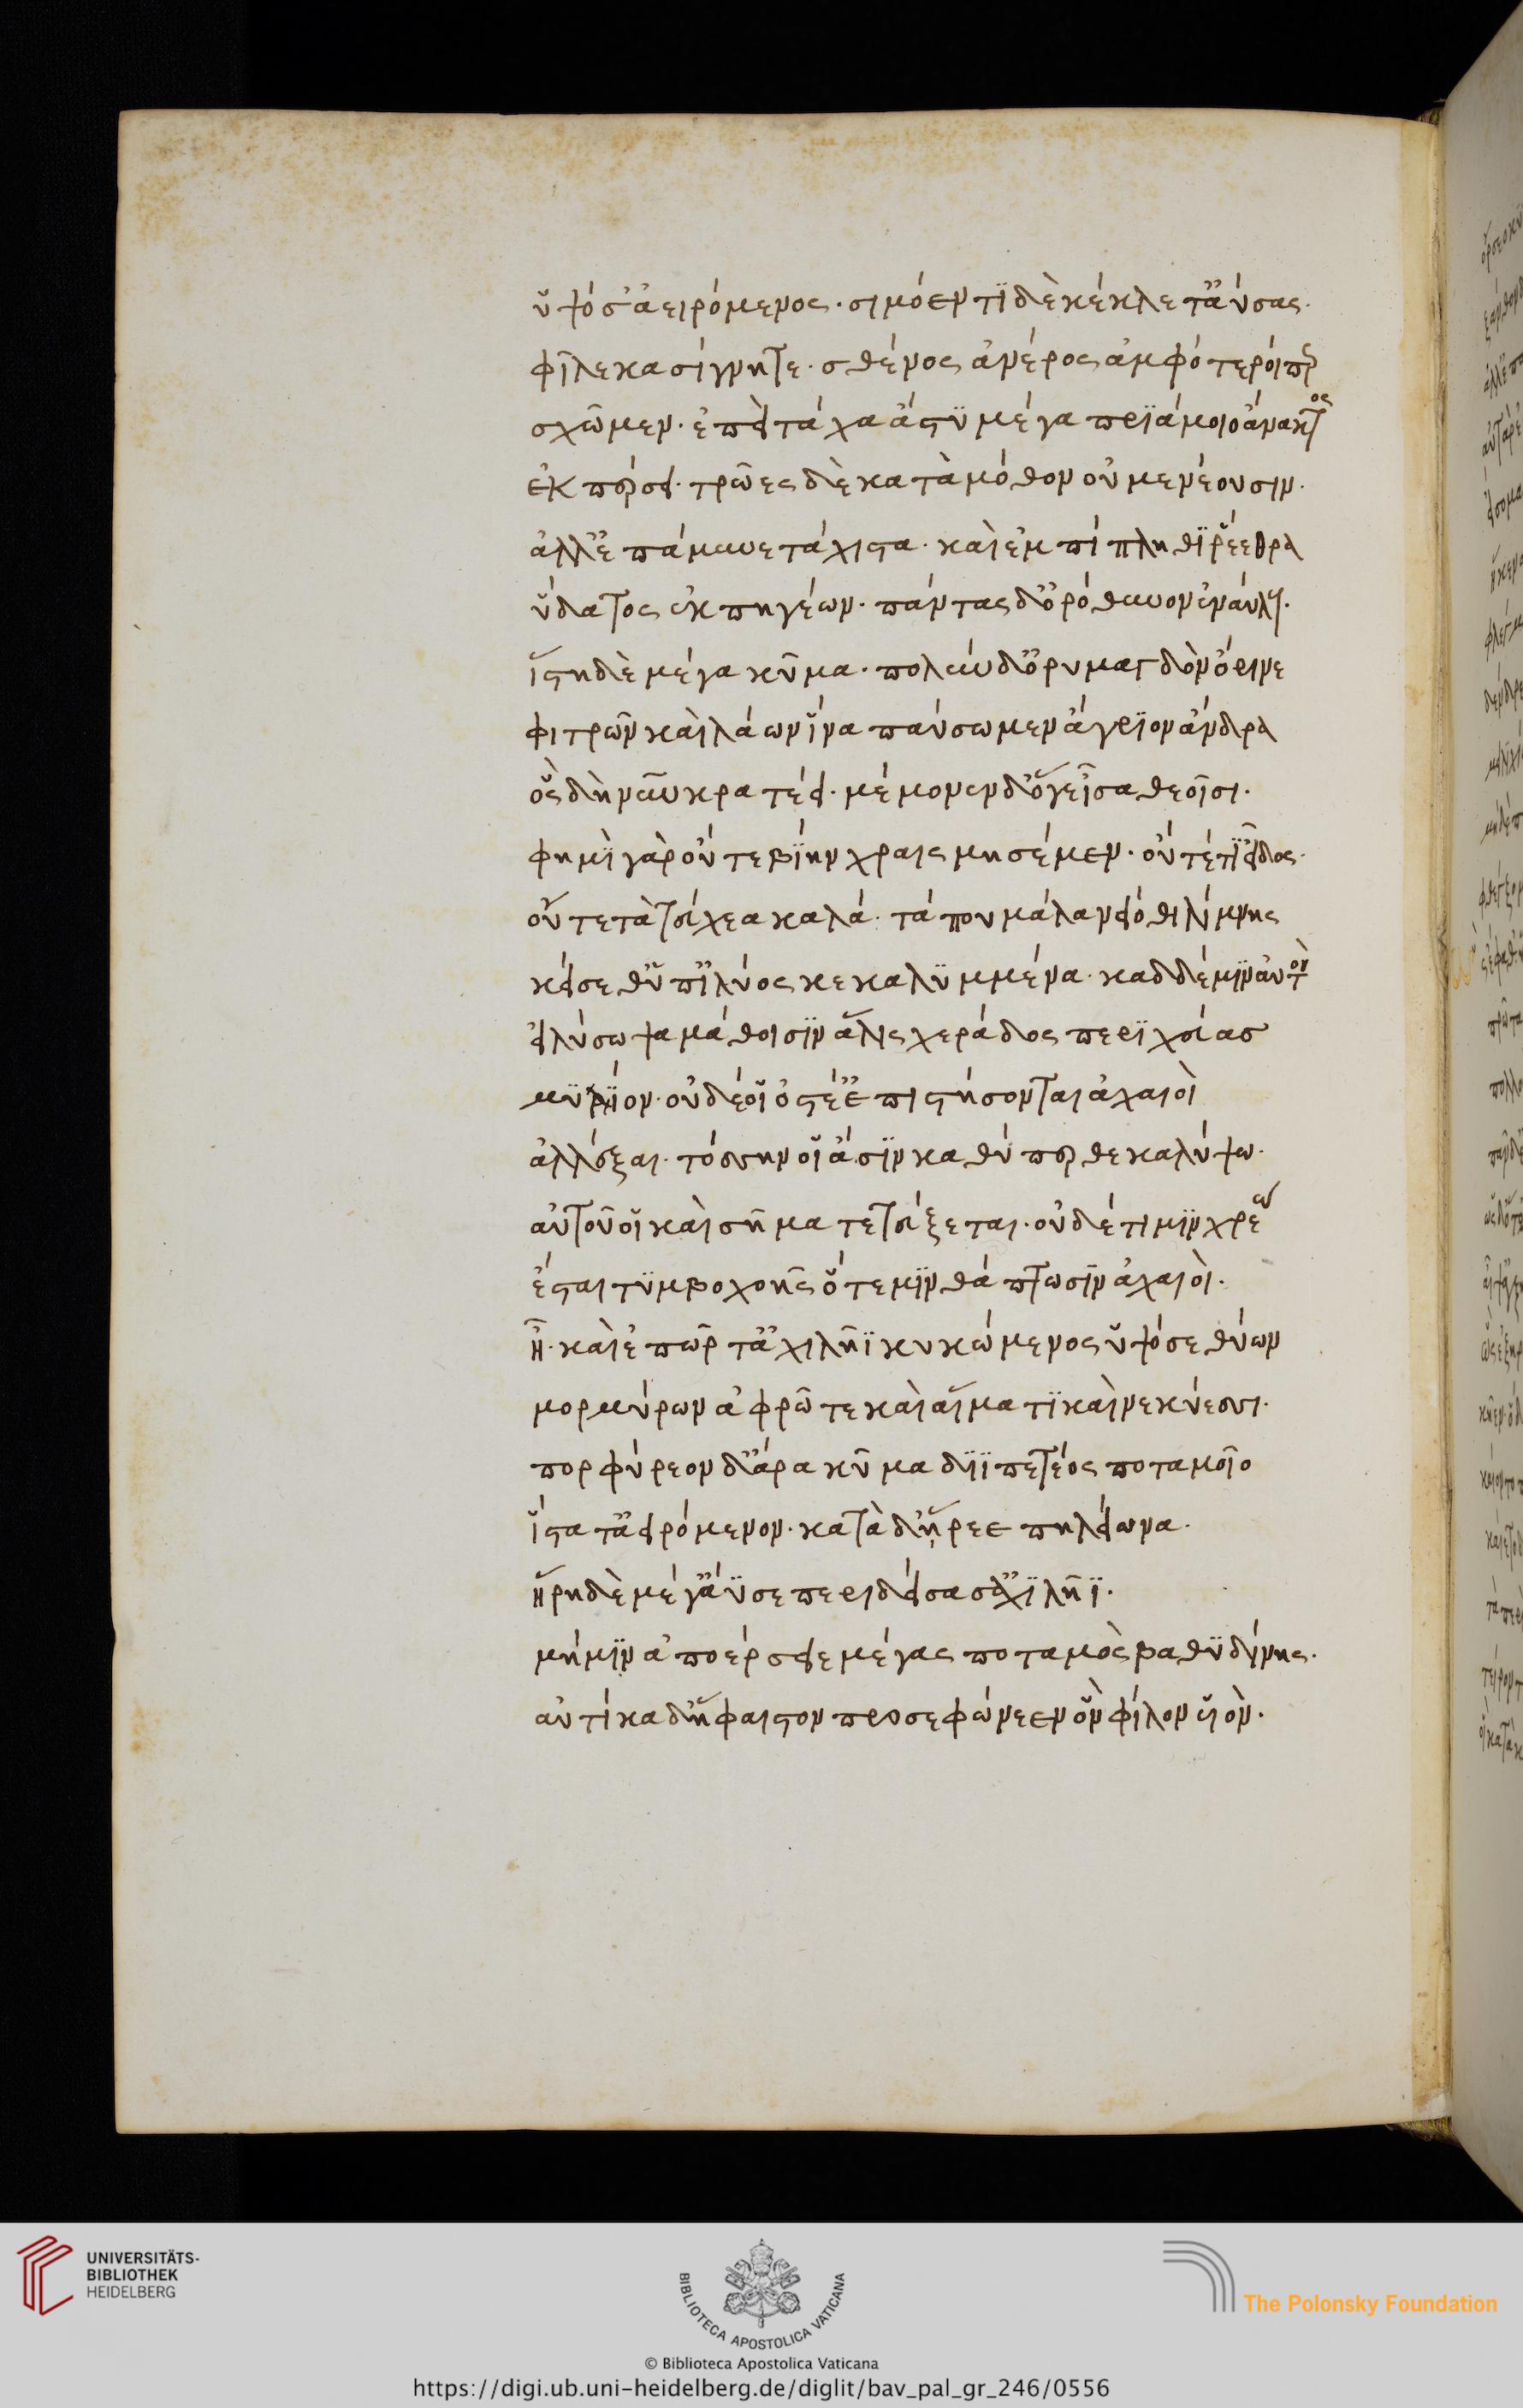 ὑψόσ' ἀειρόμενος· σιμόεντι δὲ κέκλετ' ἀύσας·
φῖλε κασίγνητε· σθένος ἀνέρος ἀμφότεροί περ
σχῶμεν· ἐπεὶ τάχα ἄστυ μέγα πριάμοιο ἄνακτος
ἐκπέρσει· τρῶες δὲ κατὰ μόθον οὐ μενέουσιν·
ἀλλ' ἐπάμυνε τάχιστα· καὶ ἐμπίπληθι ῥέεθρα
ὕδατος ἐκ πηγέων· πάντας δ' ὀρόθυνον ἐναύλους·
ἵστη δὲ μέγα κῦμα· πολὺν δ' ὀρυμαγδὸν ὄρινε
φιτρῶν καὶ λάων ἵνα παύσωμεν ἄγριον ἄνδρα
ὃς δὴ νῦν κρατέει· μέμονεν δ' ὅγε ἶσα θεοῖσι·
φημὶ γὰρ οὔτε βίην χραισμησέμεν· οὔτέ τι εἶδος·
οὔτε τὰ τεύχεα καλά· τά που μάλα νειόθι λίμνης
κείσεθ' ὑπ' ἰλύος κεκαλυμμένα· καδδέ μιν αὐτὸν
εἰλύσω ψαμάθοισιν ἅλις χεράδος περιχεύας
μυρίον· οὐδέ οἱ ὀστέ' ἐπιστήσονται ἀχαιοὶ
ἀλλέξαι· τόσσην οἱ ἄσιν καθύπερθε καλύψω·
αὐτοῦ οἱ καὶ σῆμα τετεύξεται· οὐδέ τι μιν χρεὼ
ἔσται τυμβοχοῆς ὅτε μιν θάπτωσιν ἀχαιοὶ·
ἦ· καὶ ἐπῶρτ' ἀχιλῆϊ κυκώμενος ὑψόσε θύων
μορμύρων ἀφρῶ τε καὶ αἵματι καὶ νεκύεσσι·
πορφύρεον δ' ἄρα κῦμα διϊπετέος ποταμοῖο
ἵστατ' ἀειρόμενον· κατὰ δ' ᾕρεε πηλείωνα·
ἥρη δὲ μέγ' ἄϋσε περιδείσασ' ἀχιλῆϊ·
μή μιν ἀποέρσειε μέγας ποταμὸς βαθυδίνης·
αὐτίκα δ' ἥφαιστον προσεφώνεεν ὃν φίλον υἱὸν·
UNIVERSITÄTS-
BIBLIOTHEK
HEIDELBERG
BIBLIOTECA APOSTOLICA VATICANA
The Polonsky Foundation
© Biblioteca Apostolica Vaticana
https://digi.ub.uni-heidelberg.de/diglit/bav_pal_gr_246/0556